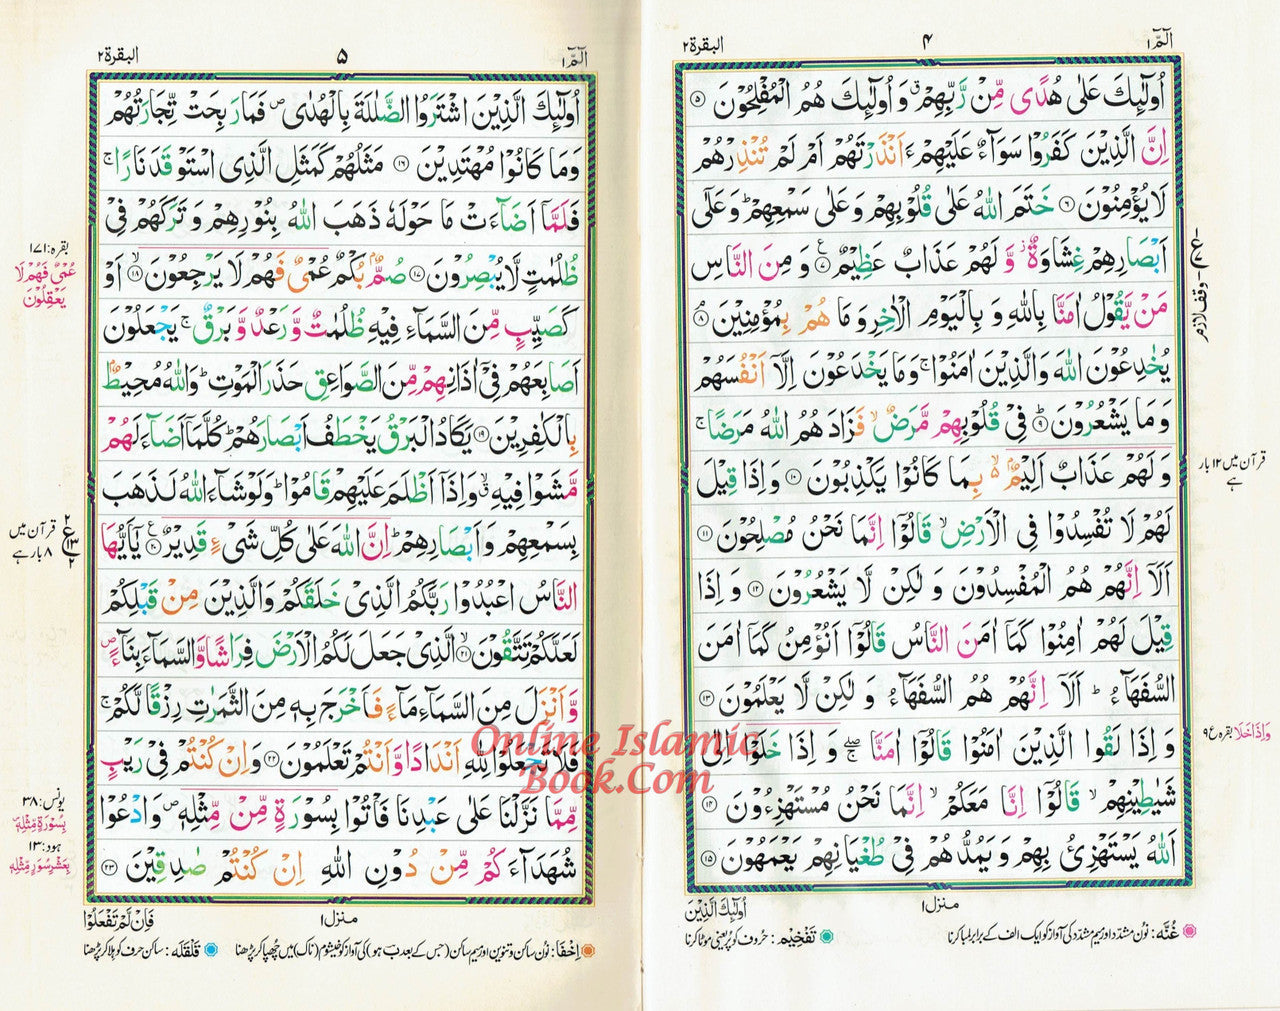 الٓمّٓ ۱
۴
البقرة ۲
اُولٰٓئِكَ عَلٰى هُدًى مِّنْ رَّبِّهِمْ ۗ وَ اُولٰٓئِكَ هُمُ الْمُفْلِحُوْنَ ۝۵
اِنَّ الَّذِيْنَ كَفَرُوْا سَوَآءٌ عَلَيْهِمْ ءَاَنْذَرْتَهُمْ اَمْ لَمْ تُنْذِرْهُمْ
لَا يُؤْمِنُوْنَ ۝۶ خَتَمَ اللّٰهُ عَلٰى قُلُوْبِهِمْ وَ عَلٰى سَمْعِهِمْ ؕ وَ عَلٰٓى
اَبْصَارِهِمْ غِشَاوَةٌ ز وَّ لَهُمْ عَذَابٌ عَظِيْمٌ ۝۷ وَ مِنَ النَّاسِ
مَنْ يَّقُوْلُ اٰمَنَّا بِاللّٰهِ وَ بِالْيَوْمِ الْاٰخِرِ وَ مَا هُمْ بِمُؤْمِنِيْنَ ۝۸
يُخٰدِعُوْنَ اللّٰهَ وَ الَّذِيْنَ اٰمَنُوْا ۚ وَ مَا يَخْدَعُوْنَ اِلَّاۤ اَنْفُسَهُمْ
وَ مَا يَشْعُرُوْنَ ۝۹ فِيْ قُلُوْبِهِمْ مَّرَضٌ ۙ فَزَادَهُمُ اللّٰهُ مَرَضًا ۚ
وَ لَهُمْ عَذَابٌ اَلِيْمٌۢ ۙ بِمَا كَانُوْا يَكْذِبُوْنَ ۝۱۰ وَ اِذَا قِيْلَ
لَهُمْ لَا تُفْسِدُوْا فِي الْاَرْضِ ۙ قَالُوْۤا اِنَّمَا نَحْنُ مُصْلِحُوْنَ ۝۱۱
اَلَاۤ اِنَّهُمْ هُمُ الْمُفْسِدُوْنَ وَ لٰكِنْ لَّا يَشْعُرُوْنَ ۝۱۲ وَ اِذَا
قِيْلَ لَهُمْ اٰمِنُوْا كَمَاۤ اٰمَنَ النَّاسُ قَالُوْۤا اَنُؤْمِنُ كَمَاۤ اٰمَنَ
السُّفَهَآءُ ؕ اَلَاۤ اِنَّهُمْ هُمُ السُّفَهَآءُ وَ لٰكِنْ لَّا يَعْلَمُوْنَ ۝۱۳
وَ اِذَا لَقُوا الَّذِيْنَ اٰمَنُوْا قَالُوْۤا اٰمَنَّا ۖۚ وَ اِذَا خَلَوْا اِلٰى
شَيٰطِيْنِهِمْ ۙ قَالُوْۤا اِنَّا مَعَكُمْ ۙ اِنَّمَا نَحْنُ مُسْتَهْزِءُوْنَ ۝۱۴
اَللّٰهُ يَسْتَهْزِئُ بِهِمْ وَ يَمُدُّهُمْ فِيْ طُغْيَانِهِمْ يَعْمَهُوْنَ ۝۱۵
وقف لازم
قرآن میں ۱۲ بار
ہے
وَاِذَا خَلَا بقرہ ع ۹
منزل ۱
اُولٰٓئِكَ الَّذِيْنَ
غُنَّہ: نون مشدّد اور میم مشدّد کی آواز کو ایک الف کے برابر لمبا کرنا
تَفْخِیْم: حروف کو پُر یعنی موٹا کرنا
الٓمّٓ ۱
۵
البقرة ۲
اُولٰٓئِكَ الَّذِيْنَ اشْتَرَوُا الضَّلٰلَةَ بِالْهُدٰى ص فَمَا رَبِحَتْ تِّجَارَتُهُمْ
وَ مَا كَانُوْا مُهْتَدِيْنَ ۝۱۶ مَثَلُهُمْ كَمَثَلِ الَّذِي اسْتَوْقَدَ نَارًا ۚ
فَلَمَّاۤ اَضَآءَتْ مَا حَوْلَهٗ ذَهَبَ اللّٰهُ بِنُوْرِهِمْ وَ تَرَكَهُمْ فِيْ
ظُلُمٰتٍ لَّا يُبْصِرُوْنَ ۝۱۷ صُمٌّۢ بُكْمٌ عُمْيٌ فَهُمْ لَا يَرْجِعُوْنَ ۙ۝۱۸ اَوْ
كَصَيِّبٍ مِّنَ السَّمَآءِ فِيْهِ ظُلُمٰتٌ وَّ رَعْدٌ وَّ بَرْقٌ ۚ يَجْعَلُوْنَ
اَصَابِعَهُمْ فِيْۤ اٰذَانِهِمْ مِّنَ الصَّوَاعِقِ حَذَرَ الْمَوْتِ ؕ وَ اللّٰهُ مُحِيْطٌۢ
بِالْكٰفِرِيْنَ ۝۱۹ يَكَادُ الْبَرْقُ يَخْطَفُ اَبْصَارَهُمْ ؕ كُلَّمَاۤ اَضَآءَ لَهُمْ
مَّشَوْا فِيْهِ ۗ وَ اِذَاۤ اَظْلَمَ عَلَيْهِمْ قَامُوْا ؕ وَ لَوْ شَآءَ اللّٰهُ لَذَهَبَ
بِسَمْعِهِمْ وَ اَبْصَارِهِمْ ؕ اِنَّ اللّٰهَ عَلٰى كُلِّ شَيْءٍ قَدِيْرٌ ۝۲۰ يٰۤاَيُّهَا
النَّاسُ اعْبُدُوْا رَبَّكُمُ الَّذِيْ خَلَقَكُمْ وَ الَّذِيْنَ مِنْ قَبْلِكُمْ
لَعَلَّكُمْ تَتَّقُوْنَ ۙ۝۲۱ الَّذِيْ جَعَلَ لَكُمُ الْاَرْضَ فِرَاشًا وَّ السَّمَآءَ بِنَآءً ص
وَّ اَنْزَلَ مِنَ السَّمَآءِ مَآءً فَاَخْرَجَ بِهٖ مِنَ الثَّمَرٰتِ رِزْقًا لَّكُمْ ۚ
فَلَا تَجْعَلُوْا لِلّٰهِ اَنْدَادًا وَّ اَنْتُمْ تَعْلَمُوْنَ ۝۲۲ وَ اِنْ كُنْتُمْ فِيْ رَيْبٍ
مِّمَّا نَزَّلْنَا عَلٰى عَبْدِنَا فَاْتُوْا بِسُوْرَةٍ مِّنْ مِّثْلِهٖ ص وَ ادْعُوْا
شُهَدَآءَكُمْ مِّنْ دُوْنِ اللّٰهِ اِنْ كُنْتُمْ صٰدِقِيْنَ ۝۲۳
بقرہ: ۱۷۱
عُمْيٌ فَهُمْ لَا
يَعْقِلُوْنَ
قرآن میں
۸ بار ہے
یونس: ۳۸
بِسُوْرَةٍ مِّثْلِهٖ
ہود: ۱۳
بِعَشْرِ سُوَرٍ مِّثْلِهٖ
منزل ۱
فَاِنْ لَّمْ تَفْعَلُوْا
اِخْفَا: نون ساکن و تنوین اور میم ساکن (جس کے بعد ب ہو) کی آواز کو خیشوم (ناک) میں چھپا کر پڑھنا
قَلْقَلَہ: ساکن حرف کو ہلا کر پڑھنا
Online Islamic
Book.Com